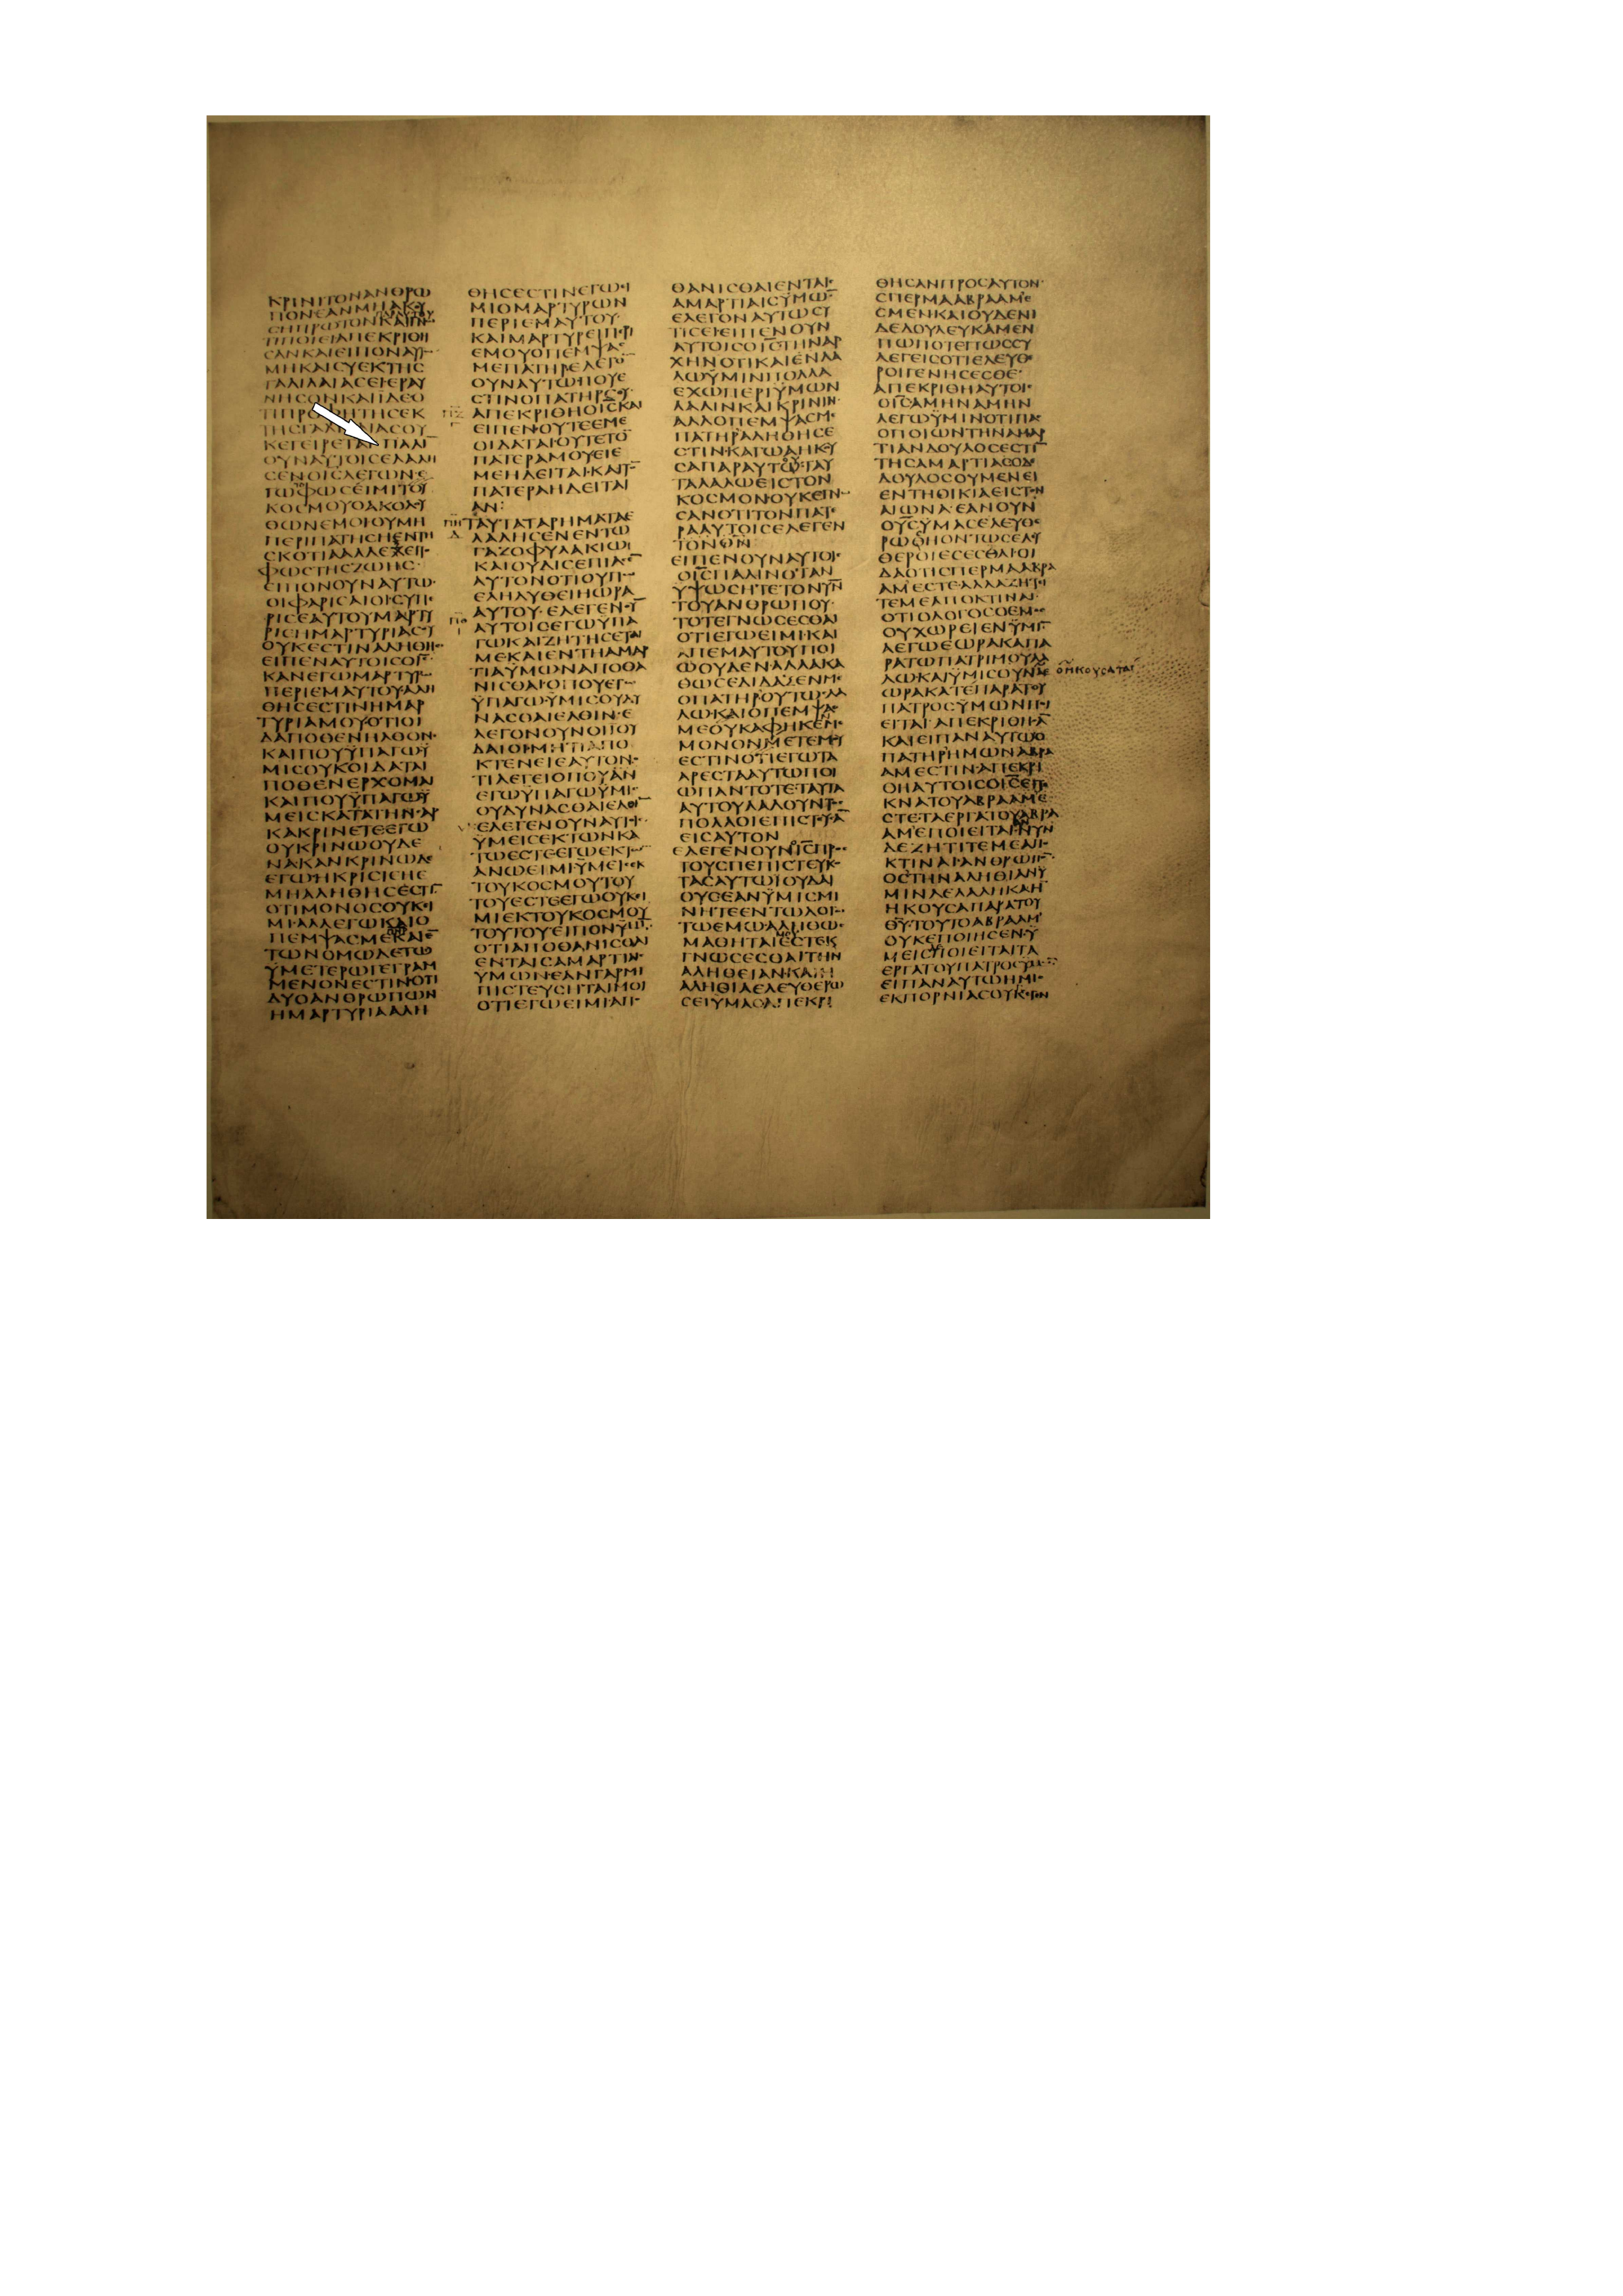 ΚΡΙΝΙΤΟΝΑΝΘΡΩ
ΠΟΝΕΑΝΜΗΑΚΟΥ
ϹΗΠΡΩΤΟΝΚΑΙΓΝΩ
ΤΙΠΟΙΕΙΑΠΕΚΡΙΘΗ
ϹΑΝΚΑΙΕΙΠΟΝΑΥΤΩ
ΜΗΚΑΙϹΥΕΚΤΗϹ
ΓΑΛΙΛΑΙΑϹΕΙΕΡΑΥ
ΝΗϹΟΝΚΑΙΪΔΕΟ
ΤΙΠΡΟΦΗΤΗϹΕΚ
ΤΗϹΓΑΛΙΛΑΙΑϹΟΥ
ΚΕΓΕΙΡΕΤΑΙ ΠΑΛΙ
ΟΥΝΑΥΤΟΙϹΕΛΑΛΗ
ϹΕΝΟΙϹΛΕΓΩΝΕ
ΓΩΦΩϹΕΙΜΙΤΟΥ
ΚΟϹΜΟΥΟΑΚΟΛΟΥ
ΘΩΝΕΜΟΙΟΥΜΗ
ΠΕΡΙΠΑΤΗϹΗΕΝΤΗ
ϹΚΟΤΙΑΑΛΛΕΧΕΙΤΟ
ΦΩϹΤΗϹΖΩΗϹ
ΕΙΠΟΝΟΥΝΑΥΤΩ
ΟΙΦΑΡΙϹΑΙΟΙϹΥΠΕ
ΡΙϹΕΑΥΤΟΥΜΑΡΤΥ
ΡΙϹΗΜΑΡΤΥΡΙΑϹΟΥ
ΟΥΚΕϹΤΙΝΑΛΗΘΗϹ
ΕΙΠΕΝΑΥΤΟΙϹΟΙϹ
ΚΑΝΕΓΩΜΑΡΤΥΡΩ
ΠΕΡΙΕΜΑΥΤΟΥΑΛΗ
ΘΗϹΕϹΤΙΝΗΜΑΡ
ΤΥΡΙΑΜΟΥΟΤΙΟΙ
ΔΑΠΟΘΕΝΗΛΘΟΝ
ΚΑΙΠΟΥΫΠΑΓΩΫ
ΜΙϹΟΥΚΟΙΔΑΤΑΙ
ΠΟΘΕΝΕΡΧΟΜΑΙ
ΚΑΙΠΟΥΫΠΑΓΩΫ
ΜΕΙϹΚΑΤΑΤΗΝϹΑΡ
ΚΑΚΡΙΝΕΤΕΕΓΩ
ΟΥΚΡΙΝΩΟΥΔΕ
ΝΑΚΑΝΚΡΙΝΩΔΕ
ΕΓΩΗΚΡΙϹΙϹΗΕ
ΜΗΑΛΗΘΗϹΕϹΤΙ
ΟΤΙΜΟΝΟϹΟΥΚΕΙ
ΜΙΑΛΛΕΓΩΚΑΙΟ
ΠΕΜΨΑϹΜΕΚΑΙΕ
ΤΩΝΟΜΩΔΕΤΩ
ΫΜΕΤΕΡΩΓΕΓΡΑΜ
ΜΕΝΟΝΕϹΤΙΝΟΤΙ
ΔΥΟΑΝΘΡΩΠΩΝ
ΗΜΑΡΤΥΡΙΑΑΛΗ
ΘΗϹΕϹΤΙΝΕΓΩΕΙ
ΜΙΟΜΑΡΤΥΡΩΝ
ΠΕΡΙΕΜΑΥΤΟΥ
ΚΑΙΜΑΡΤΥΡΕΙΠΕΡΙ
ΕΜΟΥΟΠΕΜΨΑϹ
ΜΕΠΑΤΗΡΕΛΕΓΟ
ΟΥΝΑΥΤΩΠΟΥΕ
ϹΤΙΝΟΠΑΤΗΡϹΟΥ
ΑΠΕΚΡΙΘΗΟΙϹΚΑΙ
ΕΙΠΕΝΟΥΤΕΕΜΕ
ΟΙΔΑΤΑΙΟΥΤΕΤΟ
ΠΑΤΕΡΑΜΟΥΕΙΕ
ΜΕΗΔΕΙΤΑΙΚΑΙΤΟ
ΠΑΤΕΡΑΗΔΕΙΤΑΙ
ΑΝ
ΤΑΥΤΑΤΑΡΗΜΑΤΑΕ
ΛΑΛΗϹΕΝΕΝΤΩ
ΓΑΖΟΦΥΛΑΚΙΩ
ΚΑΙΟΥΔΙϹΕΠΙΑϹΕ
ΑΥΤΟΝΟΤΙΟΥΠΩ
ΕΛΗΛΥΘΕΙΗΩΡΑ
ΑΥΤΟΥΕΛΕΓΕΝΟΥ
ΑΥΤΟΙϹΕΓΩΥΠΑ
ΓΩΚΑΙΖΗΤΗϹΕΤΑΙ
ΜΕΚΑΙΕΝΤΗΑΜΑΡ
ΤΙΑΫΜΩΝΑΠΟΘΑ
ΝΙϹΘΑΙΟΠΟΥΕΓΩ
ΫΠΑΓΩΫΜΙϹΟΥΔΥ
ΝΑϹΘΑΙΕΛΘΙΝΕ
ΛΕΓΟΝΟΥΝΟΙΪΟΥ
ΔΑΙΟΙΜΗΤΙΑΠΟ
ΚΤΕΝΕΙΕΑΥΤΟΝ
ΤΙΛΕΓΕΙΟΠΟΥΑΝ
ΕΓΩΫΠΑΓΩΫΜΙϹ
ΟΥΔΥΝΑϹΘΑΙΕΛΘΙ
ΕΛΕΓΕΝΟΥΝΑΥΤΟΙϹ
ΫΜΕΙϹΕΚΤΩΝΚΑ
ΤΩΕϹΤΕΕΓΩΕΚΤΩ
ΑΝΩΕΙΜΙΫΜΕΙϹΕΚ
ΤΟΥΚΟϹΜΟΥΤΟΥ
ΤΟΥΕϹΤΕΕΓΩΟΥΚΕΙ
ΜΙΕΚΤΟΥΚΟϹΜΟΥ
ΤΟΥΤΟΥΕΙΠΟΝΫΜΙ
ΟΤΙΑΠΟΘΑΝΙϹΘΑΙ
ΕΝΤΑΙϹΑΜΑΡΤΙΑΙϹ
ΥΜΩΝΕΑΝΓΑΡΜΗ
ΠΙϹΤΕΥϹΗΤΑΙΜΟΙ
ΟΤΙΕΓΩΕΙΜΙΑΠΟ
ΘΑΝΙϹΘΑΙΕΝΤΑΙϹ
ΑΜΑΡΤΙΑΙϹΫΜΩ
ΕΛΕΓΟΝΑΥΤΩϹΥ
ΤΙϹΕΙΕΙΠΕΝΟΥΝ
ΑΥΤΟΙϹΟΙϹΤΗΝΑΡ
ΧΗΝΟΤΙΚΑΙΕΝΛΑ
ΛΩΫΜΙΝΠΟΛΛΑ
ΕΧΩΠΕΡΙΫΜΩΝ
ΛΑΛΙΝΚΑΙΚΡΙΝΙΝ
ΑΛΛΟΠΕΜΨΑϹΜΕ
ΠΑΤΗΡΑΛΗΘΗϹΕ
ϹΤΙΝΚΑΓΩΑΗΚΟΥ
ϹΑΠΑΡΑΥΤΩΤΑΥ
ΤΑΛΑΛΩΕΙϹΤΟΝ
ΚΟϹΜΟΝΟΥΚΕΓΝΩ
ϹΑΝΟΤΙΤΟΝΠΑΤΕ
ΡΑΑΥΤΟΙϹΕΛΕΓΕΝ
ΤΟΝΘΝ
ΕΙΠΕΝΟΥΝΑΥΤΟΙϹ
ΟΙϹΠΑΛΙΝΟΤΑΝ
ΥΨΩϹΗΤΕΤΟΝΥΝ
ΤΟΥΑΝΘΡΩΠΟΥ
ΤΟΤΕΓΝΩϹΕϹΘΑΙ
ΟΤΙΕΓΩΕΙΜΙΚΑΙ
ΑΠΕΜΑΥΤΟΥΠΟΙ
ΩΟΥΔΕΝΑΛΛΑΚΑ
ΘΩϹΕΔΙΔΑΞΕΝΜΕ
ΟΠΑΤΗΡΟΥΤΩΛΑ
ΛΩΚΑΙΟΠΕΜΨΑϹ
ΜΕΟΥΚΑΦΗΚΕΝΜΕ
ΜΟΝΟΝΜΕΤΕΜΟΥ
ΕϹΤΙΝΟΤΙΕΓΩΤΑ
ΑΡΕϹΤΑΑΥΤΩΠΟΙ
ΩΠΑΝΤΟΤΕΤΑΥΤΑ
ΑΥΤΟΥΛΑΛΟΥΝΤΟϹ
ΠΟΛΛΟΙΕΠΙϹΤΕΥϹΑ
ΕΙϹΑΥΤΟΝ
ΕΛΕΓΕΝΟΥΝΟΙϹΠΡΟϹ
ΤΟΥϹΠΕΠΙϹΤΕΥΚΟ
ΤΑϹΑΥΤΩΪΟΥΔΑΙ
ΟΥϹΕΑΝΫΜΙϹΜΙ
ΝΗΤΕΕΝΤΩΛΟΓΩ
ΤΩΕΜΩΑΛΗΘΩϹ
ΜΑΘΗΤΑΙΕϹΤΕΚΑΙ
ΓΝΩϹΕϹΘΑΙΤΗΝ
ΑΛΗΘΕΙΑΝΚΑΙΗ
ΑΛΗΘΙΑΕΛΕΥΘΕΡΩ
ϹΕΙΥΜΑϹΑΠΕΚΡΙ
ΘΗϹΑΝΠΡΟϹΑΥΤΟΝ
ϹΠΕΡΜΑΑΒΡΑΑΜΕ
ϹΜΕΝΚΑΙΟΥΔΕΝΙ
ΔΕΔΟΥΛΕΥΚΑΜΕΝ
ΠΩΠΟΤΕΠΩϹϹΥ
ΛΕΓΕΙϹΟΤΙΕΛΕΥΘΕ
ΡΟΙΓΕΝΗϹΕϹΘΕ
ΑΠΕΚΡΙΘΗΑΥΤΟΙϹ
ΟΙϹΑΜΗΝΑΜΗΝ
ΛΕΓΩΫΜΙΝΟΤΙΠΑϹ
ΟΠΟΙΩΝΤΗΝΑΜΑΡ
ΤΙΑΝΔΟΥΛΟϹΕϹΤΙ
ΤΗϹΑΜΑΡΤΙΑϹΟΔΕ
ΔΟΥΛΟϹΟΥΜΕΝΕΙ
ΕΝΤΗΟΙΚΙΑΕΙϹΤΟΝ
ΑΙΩΝΑΕΑΝΟΥΝ
ΟΥϹΫΜΑϹΕΛΕΥΘΕ
ΡΩϹΗΟΝΤΩϹΕΛΕΥ
ΘΕΡΟΙΕϹΕϹΘΑΙΟΙ
ΔΑΟΤΙϹΠΕΡΜΑΑΒΡΑ
ΑΜΕϹΤΕΑΛΛΑΖΗΤΙ
ΤΕΜΕΑΠΟΚΤΙΝΑΙ
ΟΤΙΟΛΟΓΟϹΟΕΜΟϹ
ΟΥΧΩΡΕΙΕΝΫΜΙ
ΑΕΓΩΕΩΡΑΚΑΠΑ
ΡΑΤΩΠΑΤΡΙΜΟΥΛΑ
ΛΩΚΑΙΫΜΙϹΟΥΝΑΕ
ὁἠκουσαται
ΩΡΑΚΑΤΕΠΑΡΑΤΟΥ
ΠΑΤΡΟϹΫΜΩΝΠΟΙ
ΕΙΤΑΙΑΠΕΚΡΙΘΗϹΑ
ΚΑΙΕΙΠΑΝΑΥΤΩΟ
ΠΑΤΗΡΗΜΩΝΑΒΡΑ
ΑΜΕϹΤΙΝΑΠΕΚΡΙ
ΘΗΑΥΤΟΙϹΟΙϹΕΙΤΕ
ΚΝΑΤΟΥΑΒΡΑΑΜΕ
ϹΤΕΤΑΕΡΓΑΤΟΥΑΒΡΑ
ΑΜΕΠΟΙΕΙΤΑΙΝΥΝ
ΔΕΖΗΤΙΤΕΜΕΑΠΟ
ΚΤΙΝΑΙΑΝΘΡΩΠΟ
ΟϹΤΗΝΑΛΗΘΙΑΝΫ
ΜΙΝΛΕΛΑΛΗΚΑΗ
ΗΚΟΥϹΑΠΑΡΑΤΟΥ
ΘΥΤΟΥΤΟΑΒΡΑΑΜ
ΟΥΚΕΠΟΙΗϹΕΝΫ
ΜΕΙϹΠΟΙΕΙΤΑΙΤΑ
ΕΡΓΑΤΟΥΠΑΤΡΟϹΫΜΩ
ΕΙΠΑΝΑΥΤΩΗΜΙϹ
ΕΚΠΟΡΝΙΑϹΟΥΚΕΓΕΝ